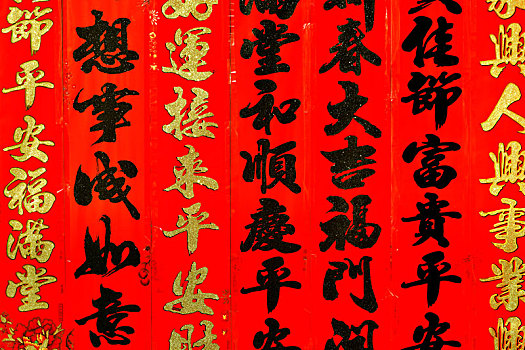 家興人興事業興
佳節富貴平安
新春大吉福門開
滿堂和順慶平安
好運接來平安財
想事成如意
佳節平安福滿堂